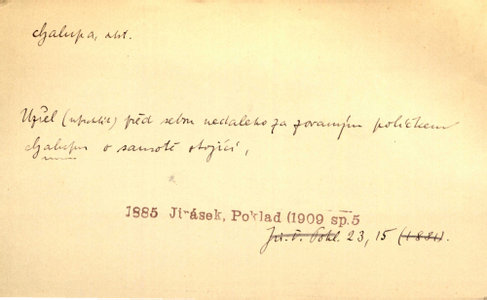 chalupa, ost.
Uzřel (uprchlík) před sebou nedaleko za zoraným políčkem
chalupu o samotě stojící,
1885 Jirásek, Poklad (1909 sp.5
Jir. Pokl. 23, 15 (1881).